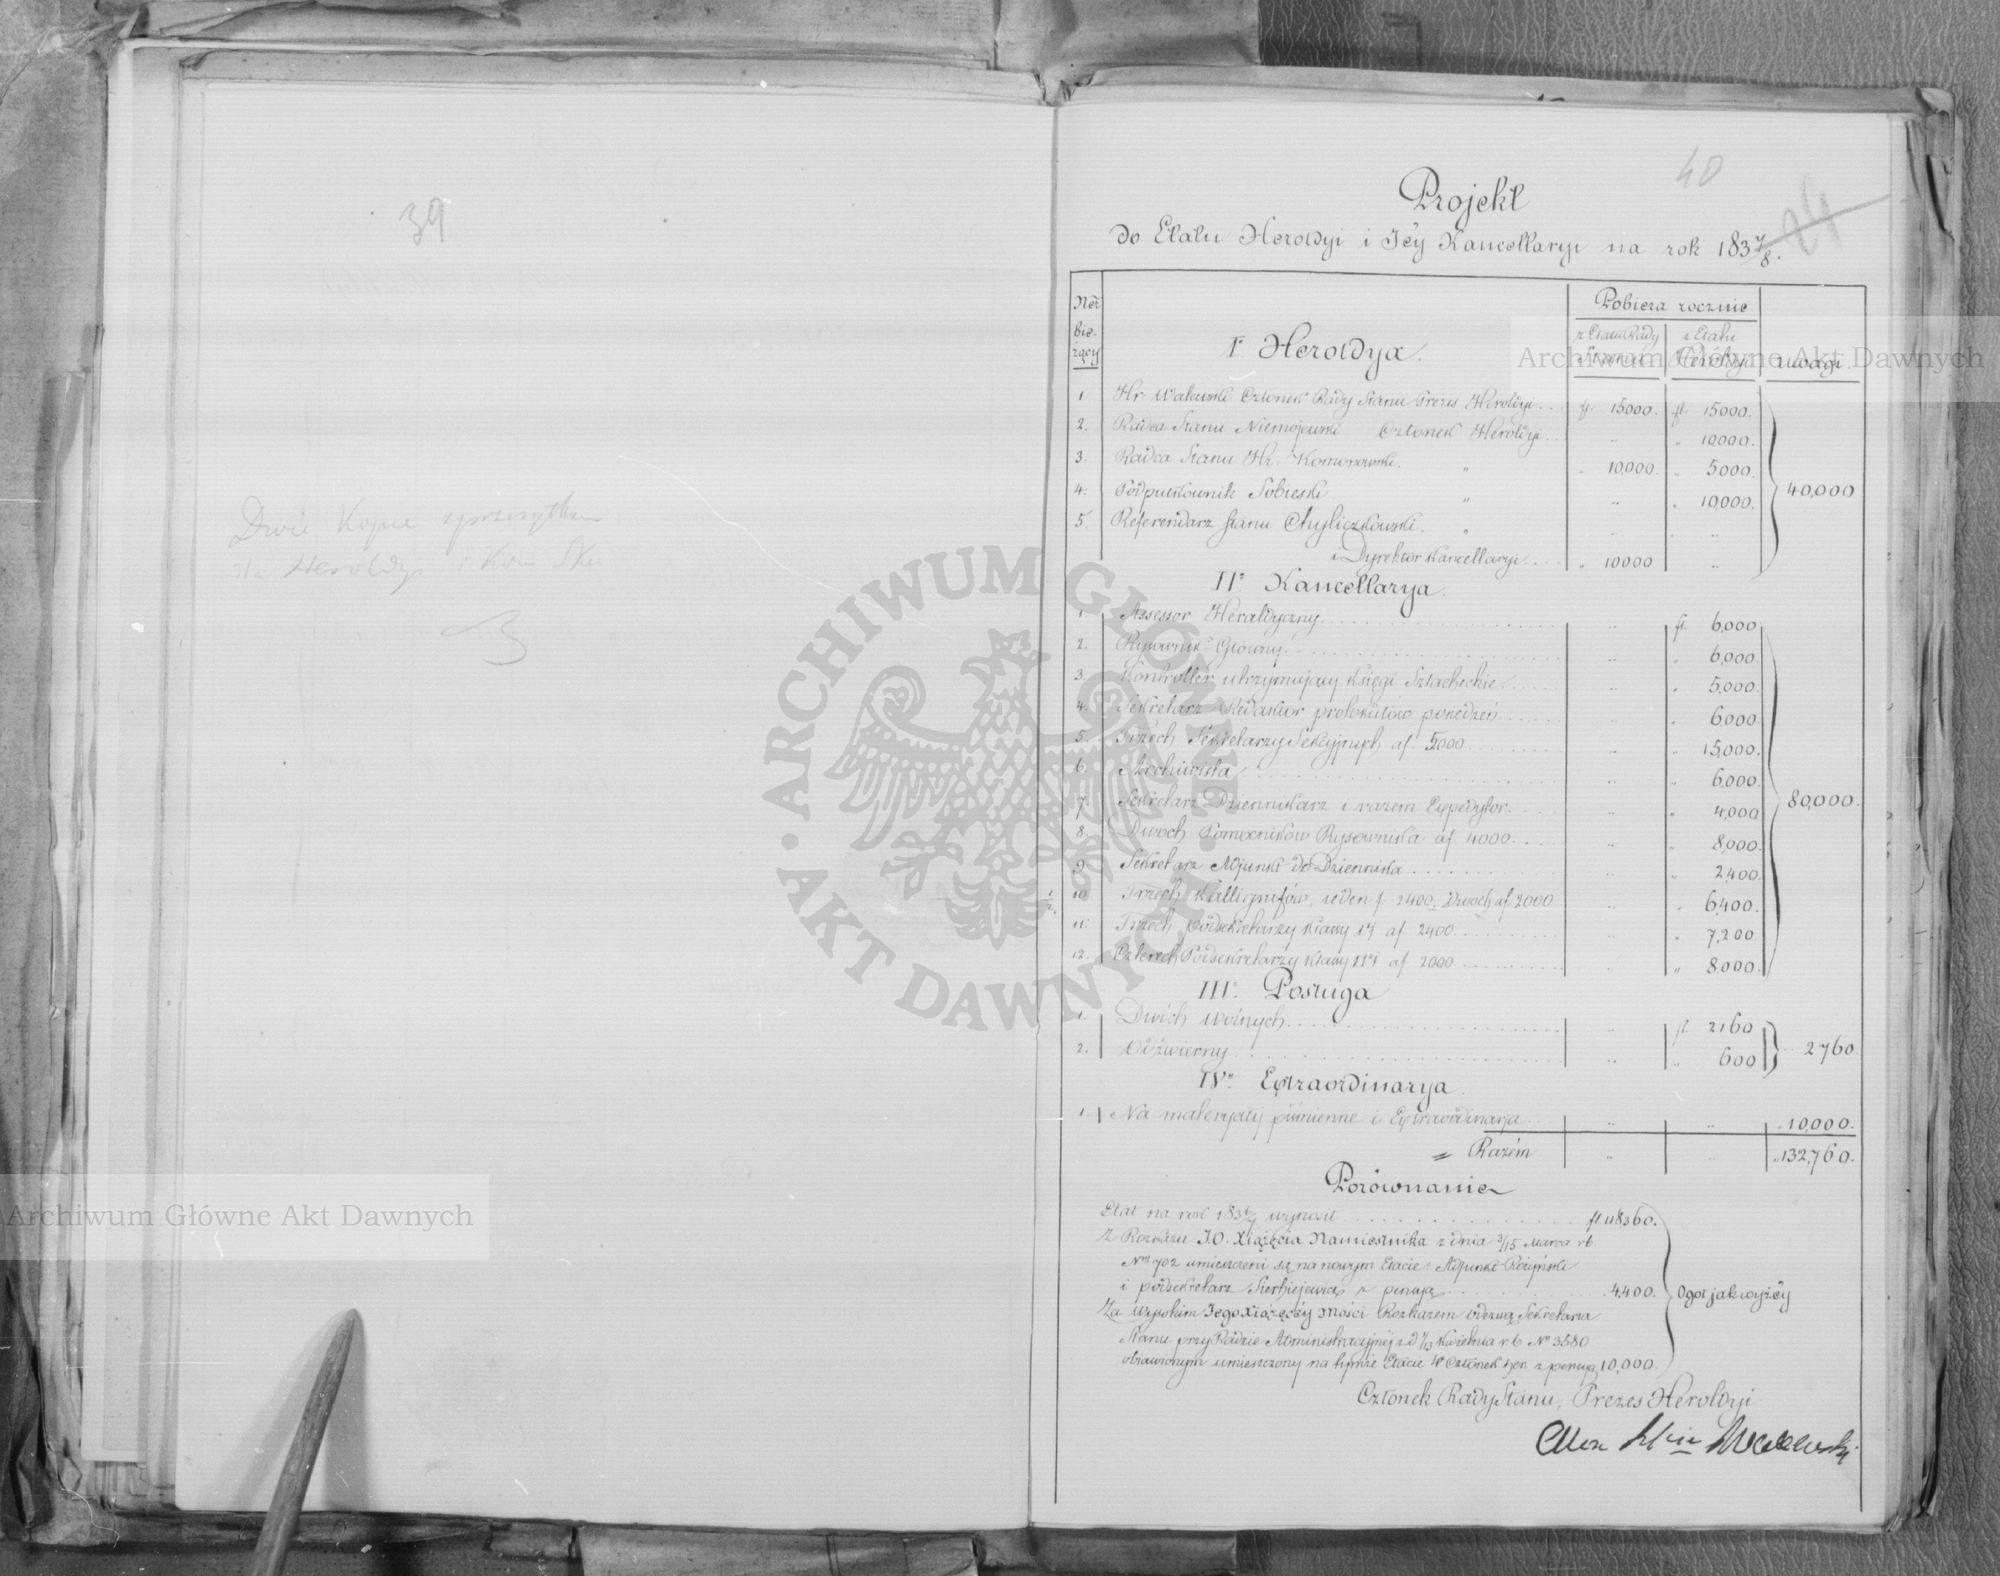 39
Dwie Kopie
dla Heroldyi i Kom
40
24
Projekt
do Etatu Heroldyi i Jéy Kancellaryi na rok 1837/8.
Ner bie- żący
Pobiera rocznie
z Etatu Rady Stanu
z Etatu Heroldyi
Uwagi
I° Heroldya.
1 Hr. Walewski Członek Rady Stanu Prezes Heroldyi.. fl. 15000. fl. 15000.
2. Radca Stanu Niemojewski Członek Heroldyi.. " " 10,000.
3. Radca Stanu Hr. Komorowski. " " 10,000. " 5000.
4. Podpułkownik Sobieski " " " 10,000.
40,000
5. Referendarz Stanu Chyliczkowski. " " "
i Dyrektor Kancellaryi... " 10000 "
II° Kancellarya.
1. Assessor Heraldyczny... " fl. 6,000
2. Rysownik Główny... " " 6,000
3. Kontroller utrzymujący Księgi Szlacheckie... " " 5,000.
4. Sekretarz Redaktor protokułów posiedzeń... " " 6000.
5. Trzech Sekretarzy Sekcyjnych af. 5000... " " 15,000.
6. Archiwista... " " 6,000.
7. Sekretarz Dziennikarz i razem Expedytor... " " 4,000
80,000.
8. Dwóch Pomocników Rysownika af 4000... " " 8,000.
9. Sekretarz Adjunkt do Dziennika... " " 2,400.
10 Trzech Kalligrafów, ieden f. 2400, dwóch af 2000 " " 6,400.
11. Trzech Podsekretarzy Klassy 1éj af 2400... " " 7,200.
12. Czterech Podsekretarzy Klassy IIéj af 2000... " " 8,000.
III° Posługa
1. Dwóch woźnych... " fl. 2160
2. Odźwierny... " " 600
2760.
IV° Extraordinarya.
1. Na materyały piśmienne i Extraordinarja.. " " "10,000.
Razém " " "132,760.
Porównanie
Etat na rok 1836/7 wynosił... fl. 118360.
Z Rozkazu J.O. Xiążęcia Namiestnika z dnia 3/15 Marca r.b.
Nro 702 umieszczeni są na nowym Etacie: Adjunkt Rożyński
i podsekretarz Sierhiejewicz z pensyą... 4,400.
Ogół jak wyżéy
Za wysokim Jego Xiążęcéy Mości Rozkazem odezwą Sekretarza
Stanu przy Radzie Administracyjnéj z d. 1/13 Kwietnia r.b. No 3580
obiawionym umieszczony na tymże Etacie 4t Członek Her. z pensyą 10,000.
Członek Rady Stanu, Prezes Heroldyi
Alex Walewski
Archiwum Główne Akt Dawnych
Archiwum Główne Akt Dawnych
ARCHIWUM GŁÓWNE · AKT DAWNYCH ·